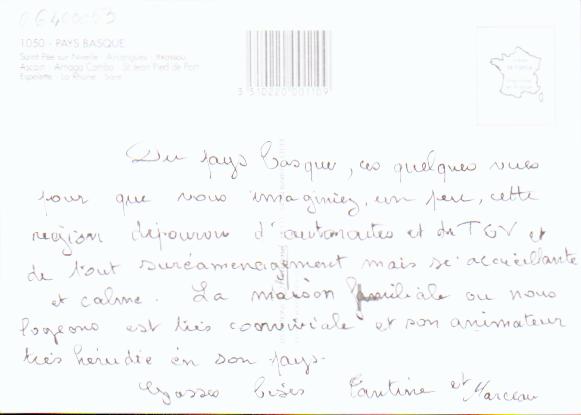 06400053
1050 - PAYS BASQUE
Saint Pée sur Nivelle - Arcangues - Itxassou
Ascain - Arnaga Cambo - St Jean Pied de Port
Espelette - La Rhune - Sare
3 510220 001109
Du pays basque, ces quelques vues
pour que vous imaginiez, un peu, cette
region dépourvu d'autoroutes et de TGV et
de tout suréamenagement mais si accueillante
et calme. La maison familiale ou nous
logeons est très conviviale et son animateur
très hérudie en son pays.
Grosses bises Tantine et Marceau